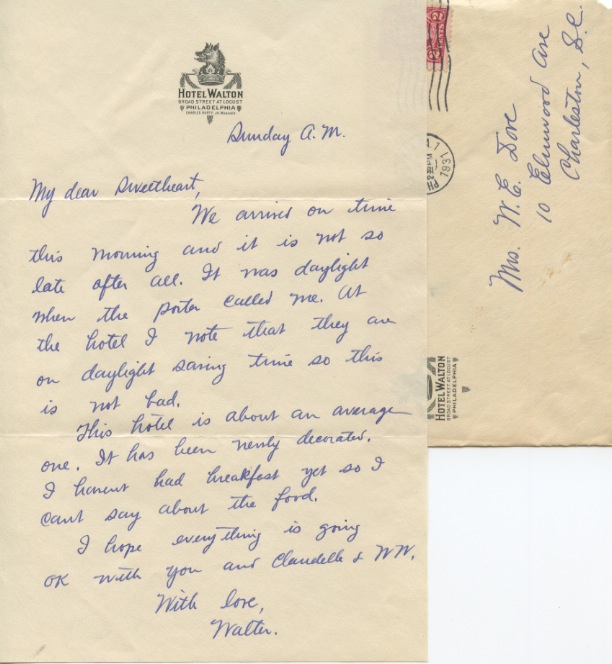 HOTEL WALTON
BROAD STREET AT LOCUST
PHILADELPHIA
Sunday A.M.
My dear Sweetheart,
We arrived on time
this morning and it is not so
late after all. It was daylight
when the porter called me. At
the hotel I note that they are
on daylight saving time so this
is not bad.
This hotel is about an average
one. It has been newly decorated.
I havent had breakfast yet so I
cant say about the food.
I hope everything is going
OK with you and Claudelle & WW.
With love,
Walter.
2 CENTS 2
1931
Mrs. W. E. Dove
10 Elmwood Ave
Charleston, S.C.
HOTEL WALTON
BROAD STREET AT LOCUST
PHILADELPHIA